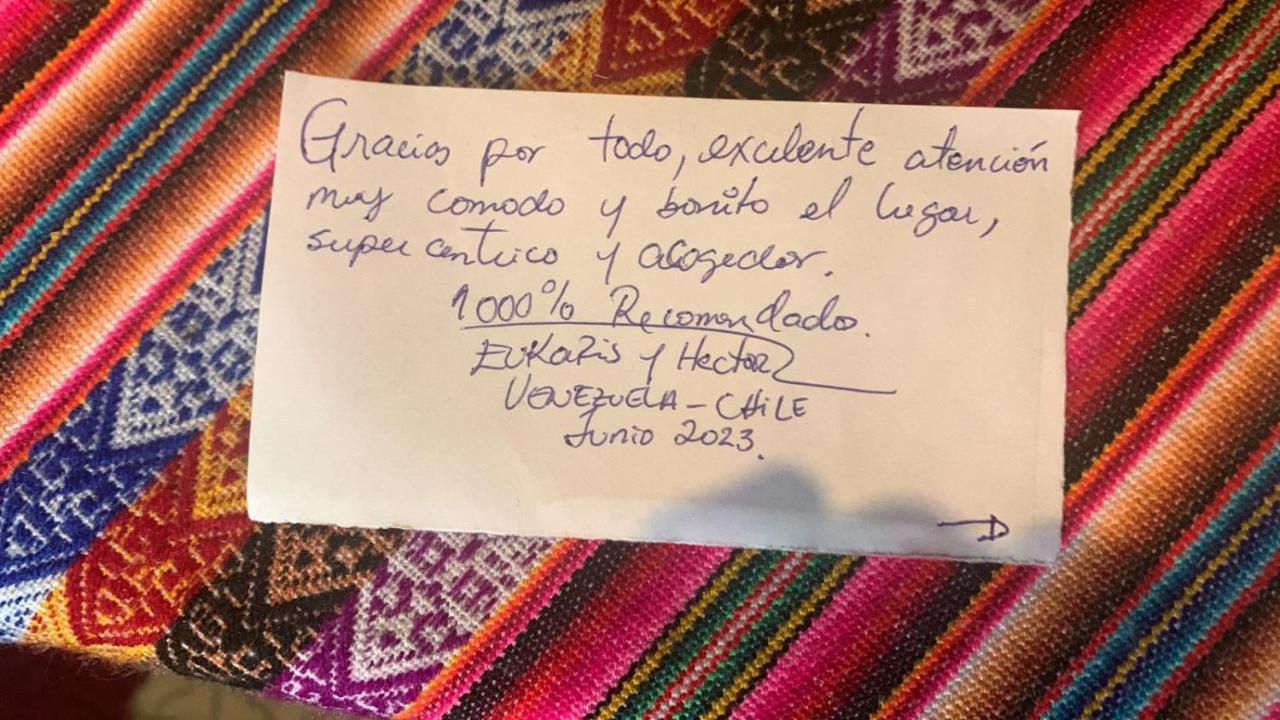 Gracias por todo, excelente atención
muy comodo y bonito el lugar,
super centrico y acogedor.
1000% Recomendado.
Eukaris y Hector
VENEZUELA - CHiLE
Junio 2023.